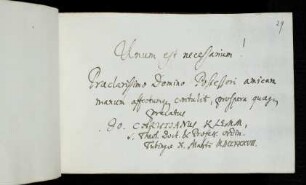 29
Unum est necessarium!
Praeclarissimo Domino Possessori amicam
manum affectumq contulit, prospera quaeq
precatus
Jo. CHRISTIANUS KLEMM,
S. Theol. Doct. & Profess. ordin.
Tubingae X. MDCCXXXVII.